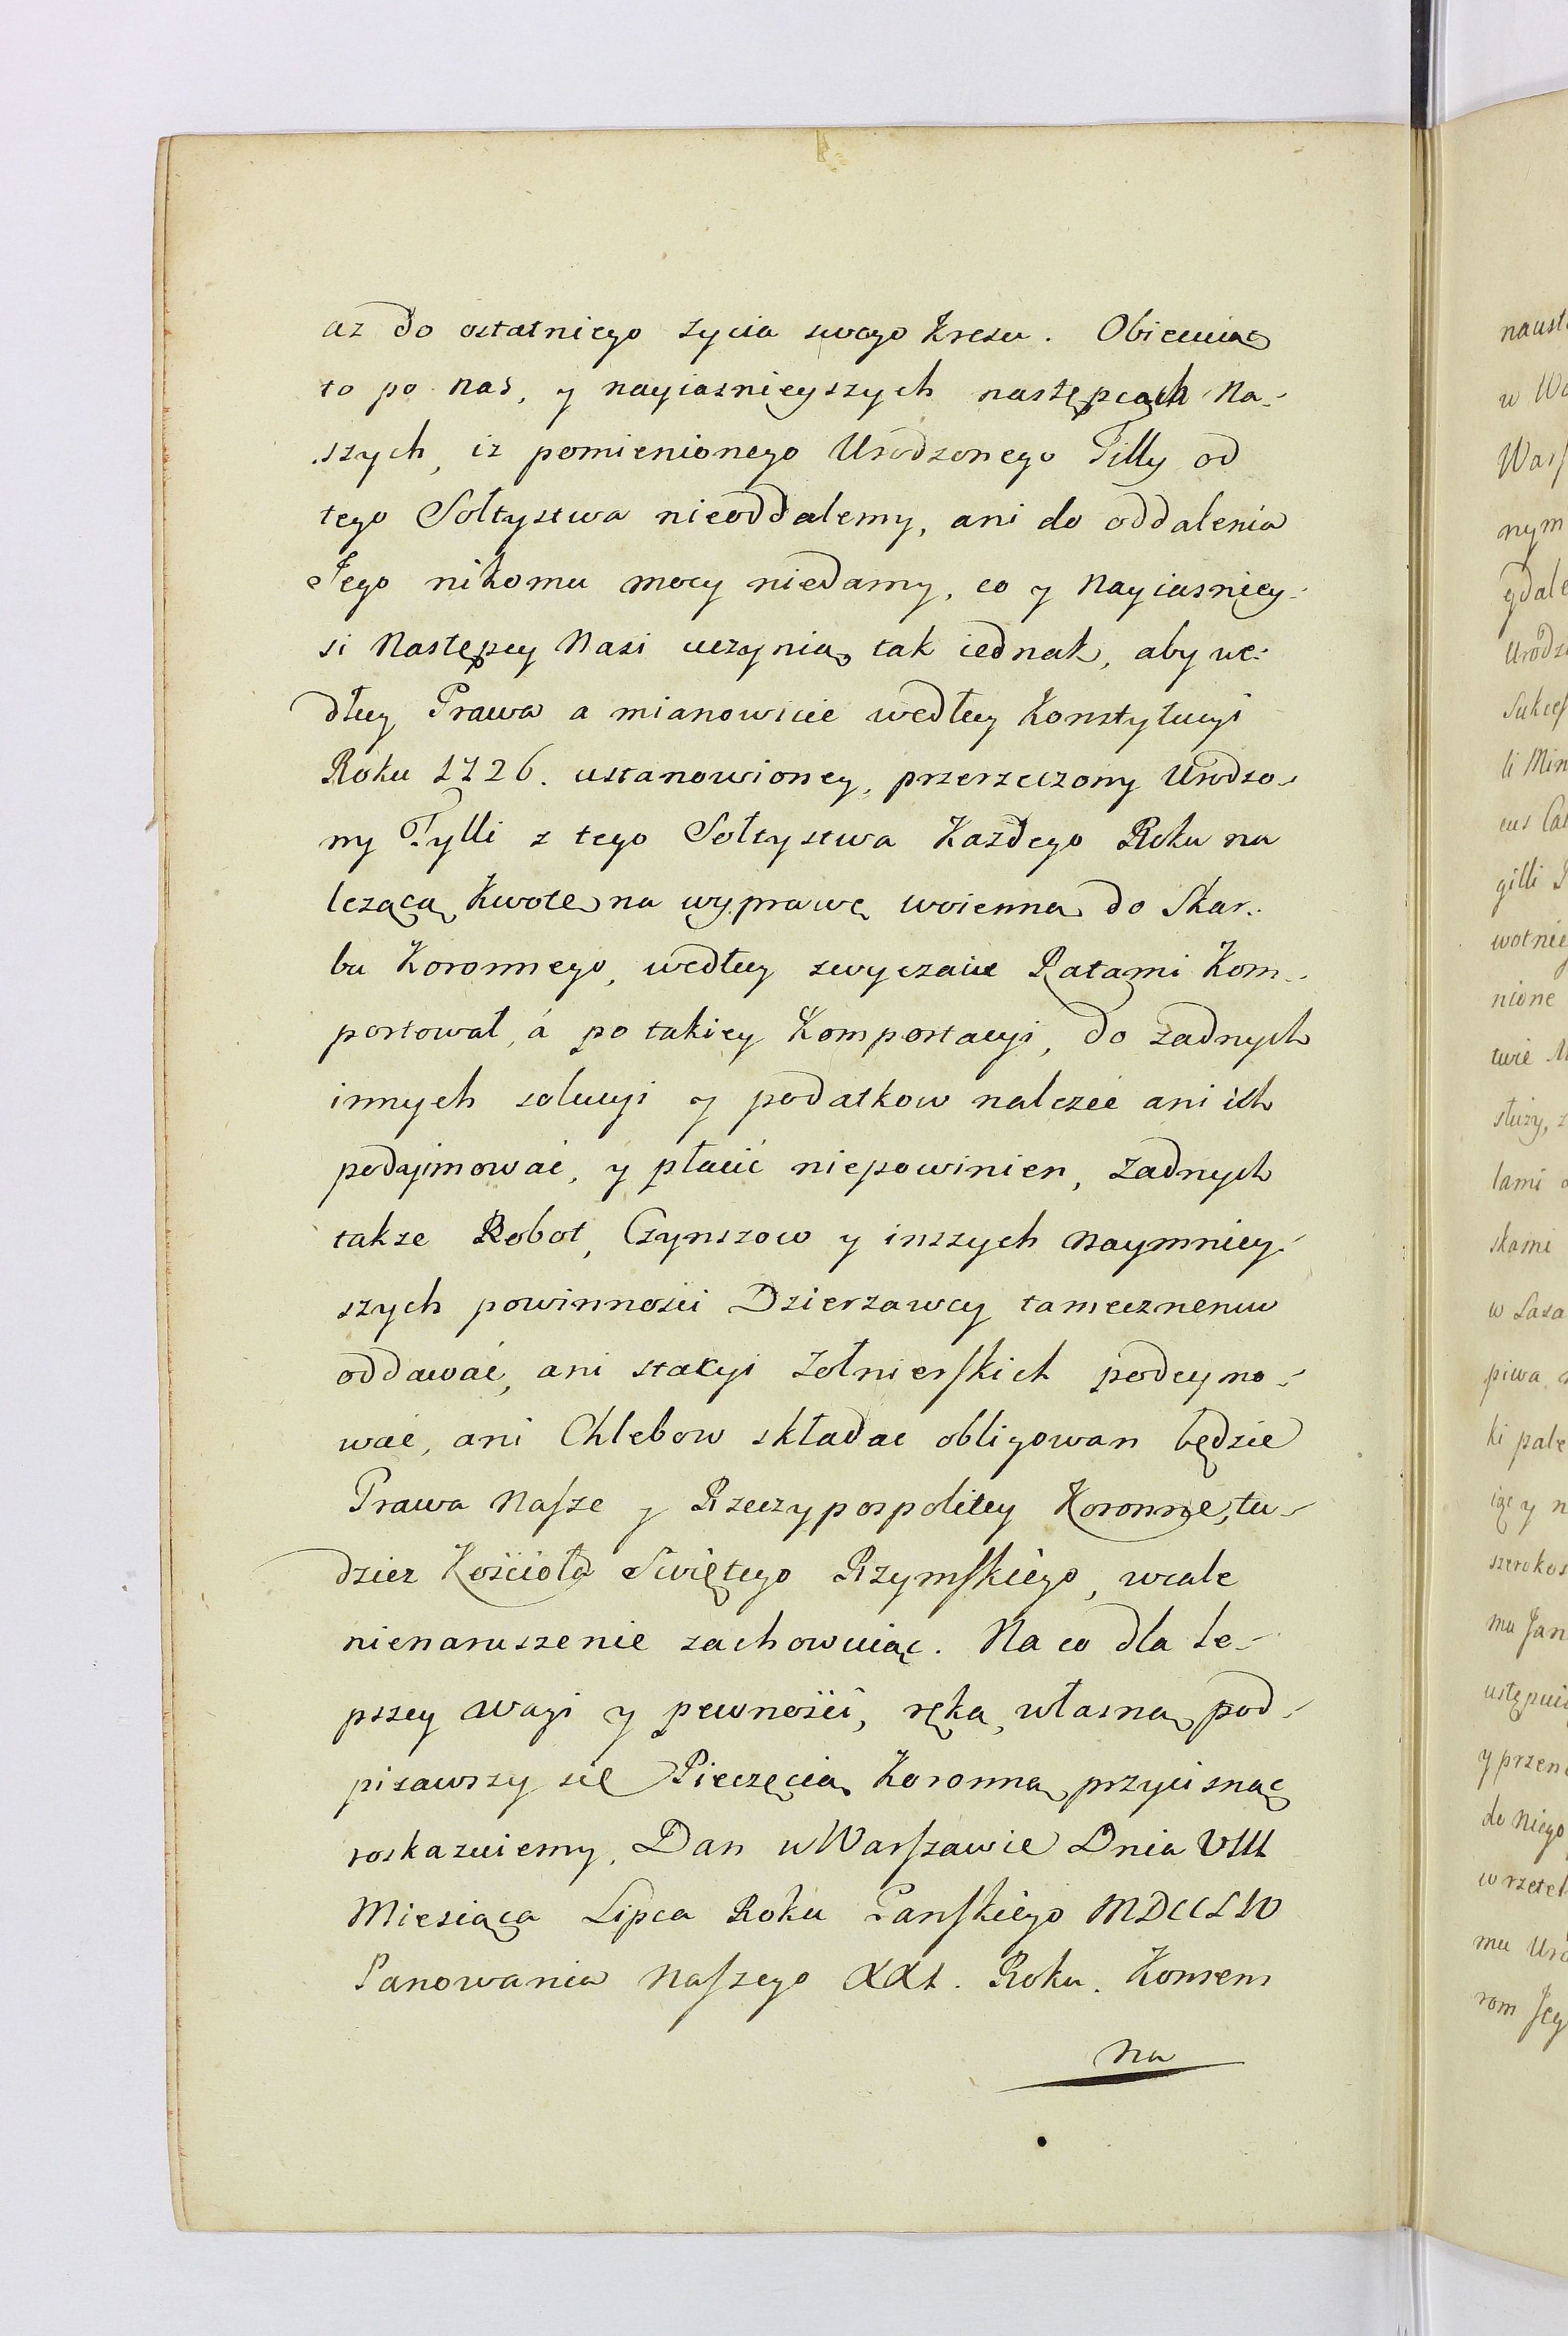 az do ostatniego zycia swego Kresu. Obiecuiąc
to po nas, y nayiasnieyszych następcach Na-
szych, iz pomienionego Urodzonego Tilly od
tego Sołtystwa nieoddalemy, ani do oddalenia
Jego nikomu mocy niedamy, co y Nayiasniey-
si Następcy Nasi uczynią tak iednak, aby we-
dług Prawa a mianowicie według Konstytucyi
Roku 1726. ustanowioney, przerzeczony Urodzo-
ny Tylli z tego Sołtystwa Kazdego Roku na
lezącą Kwotę na wyprawę woienną do Skar-
bu Koronnego, według zwyczaiu Ratami Kom-
portował, á po takiey Komportacyi, do zadnych
innych solucyi y podatkow nalezeć ani ich
podyimować, y płacić niepowinien, zadnych
takze Robot, Czynszow y inszych naymniey-
szych powinnosci Dzierzawcy tamecznemu
oddawać, ani stacyi zołnierskich podeymo-
wać, ani Chlebow składac obligowan będzie
Prawa Nasze y Rzeczypospolitey Koronne, tu-
dziez Kościoła Swiętego Rzymskiego, wcale
nienaruszenie zachowuiąc. Na co dla le-
pszey wagi y pewności, ręką własną pod-
pisawszy się Pieczęcią Koronną przycisnąc
roskazuiemy. Dan w Warszawie Dnia VIII
Miesiąca Lipca Roku Panskiego MDCCLIV
Panowania Naszego XXI. Roku. Konsens
na
w Wa
nym
Urodz
li Min
wotnie
nione
twie
służy, z
lami
skami
w Lasa
piwa
ki pale
szerokos
mu Jan
ustępui
y przen
do Niego
w rzetel
mu Uro
rom Jey